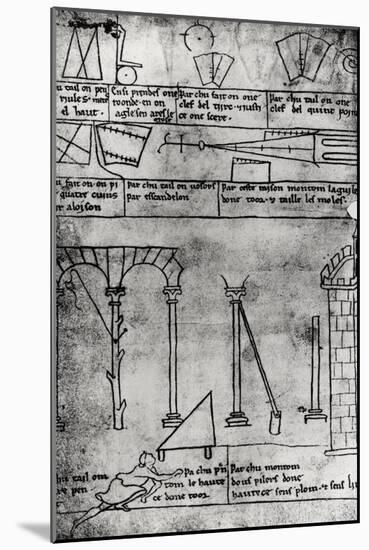 u tail om pen
el haut.
Ensi prendes one
roonde en on
agle sen ares le
Par chu fait on one
clef del tiers
ce one scere.
Par chu tail on one
clef del quint poin
u fait on. on pi
quatre cuins
er aloison
par chu tail on vosors
par escandelon
par ceste raison montom laguile
done toor. & taille les moles.
chu tail om
re pen
pa chu pn
tom le haute
ce done toor.
Par chu montom
dous pilers done
hautece sens plom. & sens li